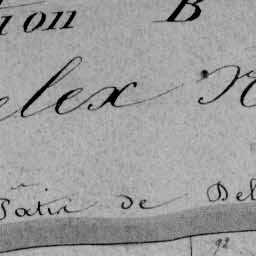 ion B
elex
Patir de Del
92